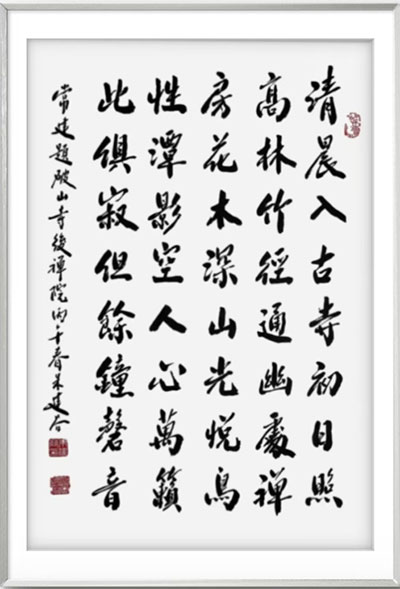 清晨入古寺初日照
高林竹徑通幽處禪
房花木深山光悅鳥
性潭影空人心萬籟
此俱寂但餘鐘磬音
常建題破山寺後禪院丙午春